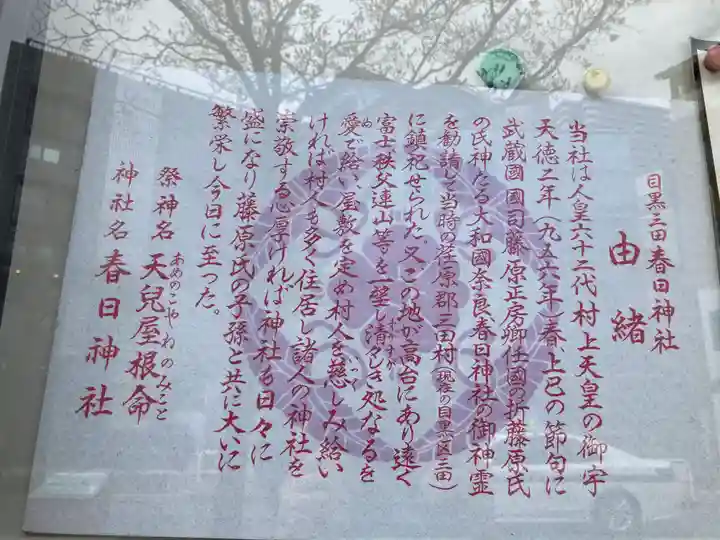 目黒三田春日神社
由緒
当社は人皇六十二代村上天皇の御宇
天徳二年(九五六年)春、上巳の節句に
武蔵國國司藤原正房卿任國の折藤原氏
の氏神たる大和國奈良、春日神社の御神霊
を勧請して当時の荏原郡三田村(現在の目黒区三田)
に鎮祀せられた。又この地が高台にあり遠く
富士秩父連山等を一望し清々しき処なるを
愛で給い、屋敷を定め村人を慈しみ給い
ければ村人も多く住居し諸人の神社を
崇敬する心厚ければ神社も日々に
盛になり藤原氏の子孫と共に大いに
繁栄し今日に至った。
祭神名 天兒屋根命
あめのこやねのみこと
神社名 春日神社